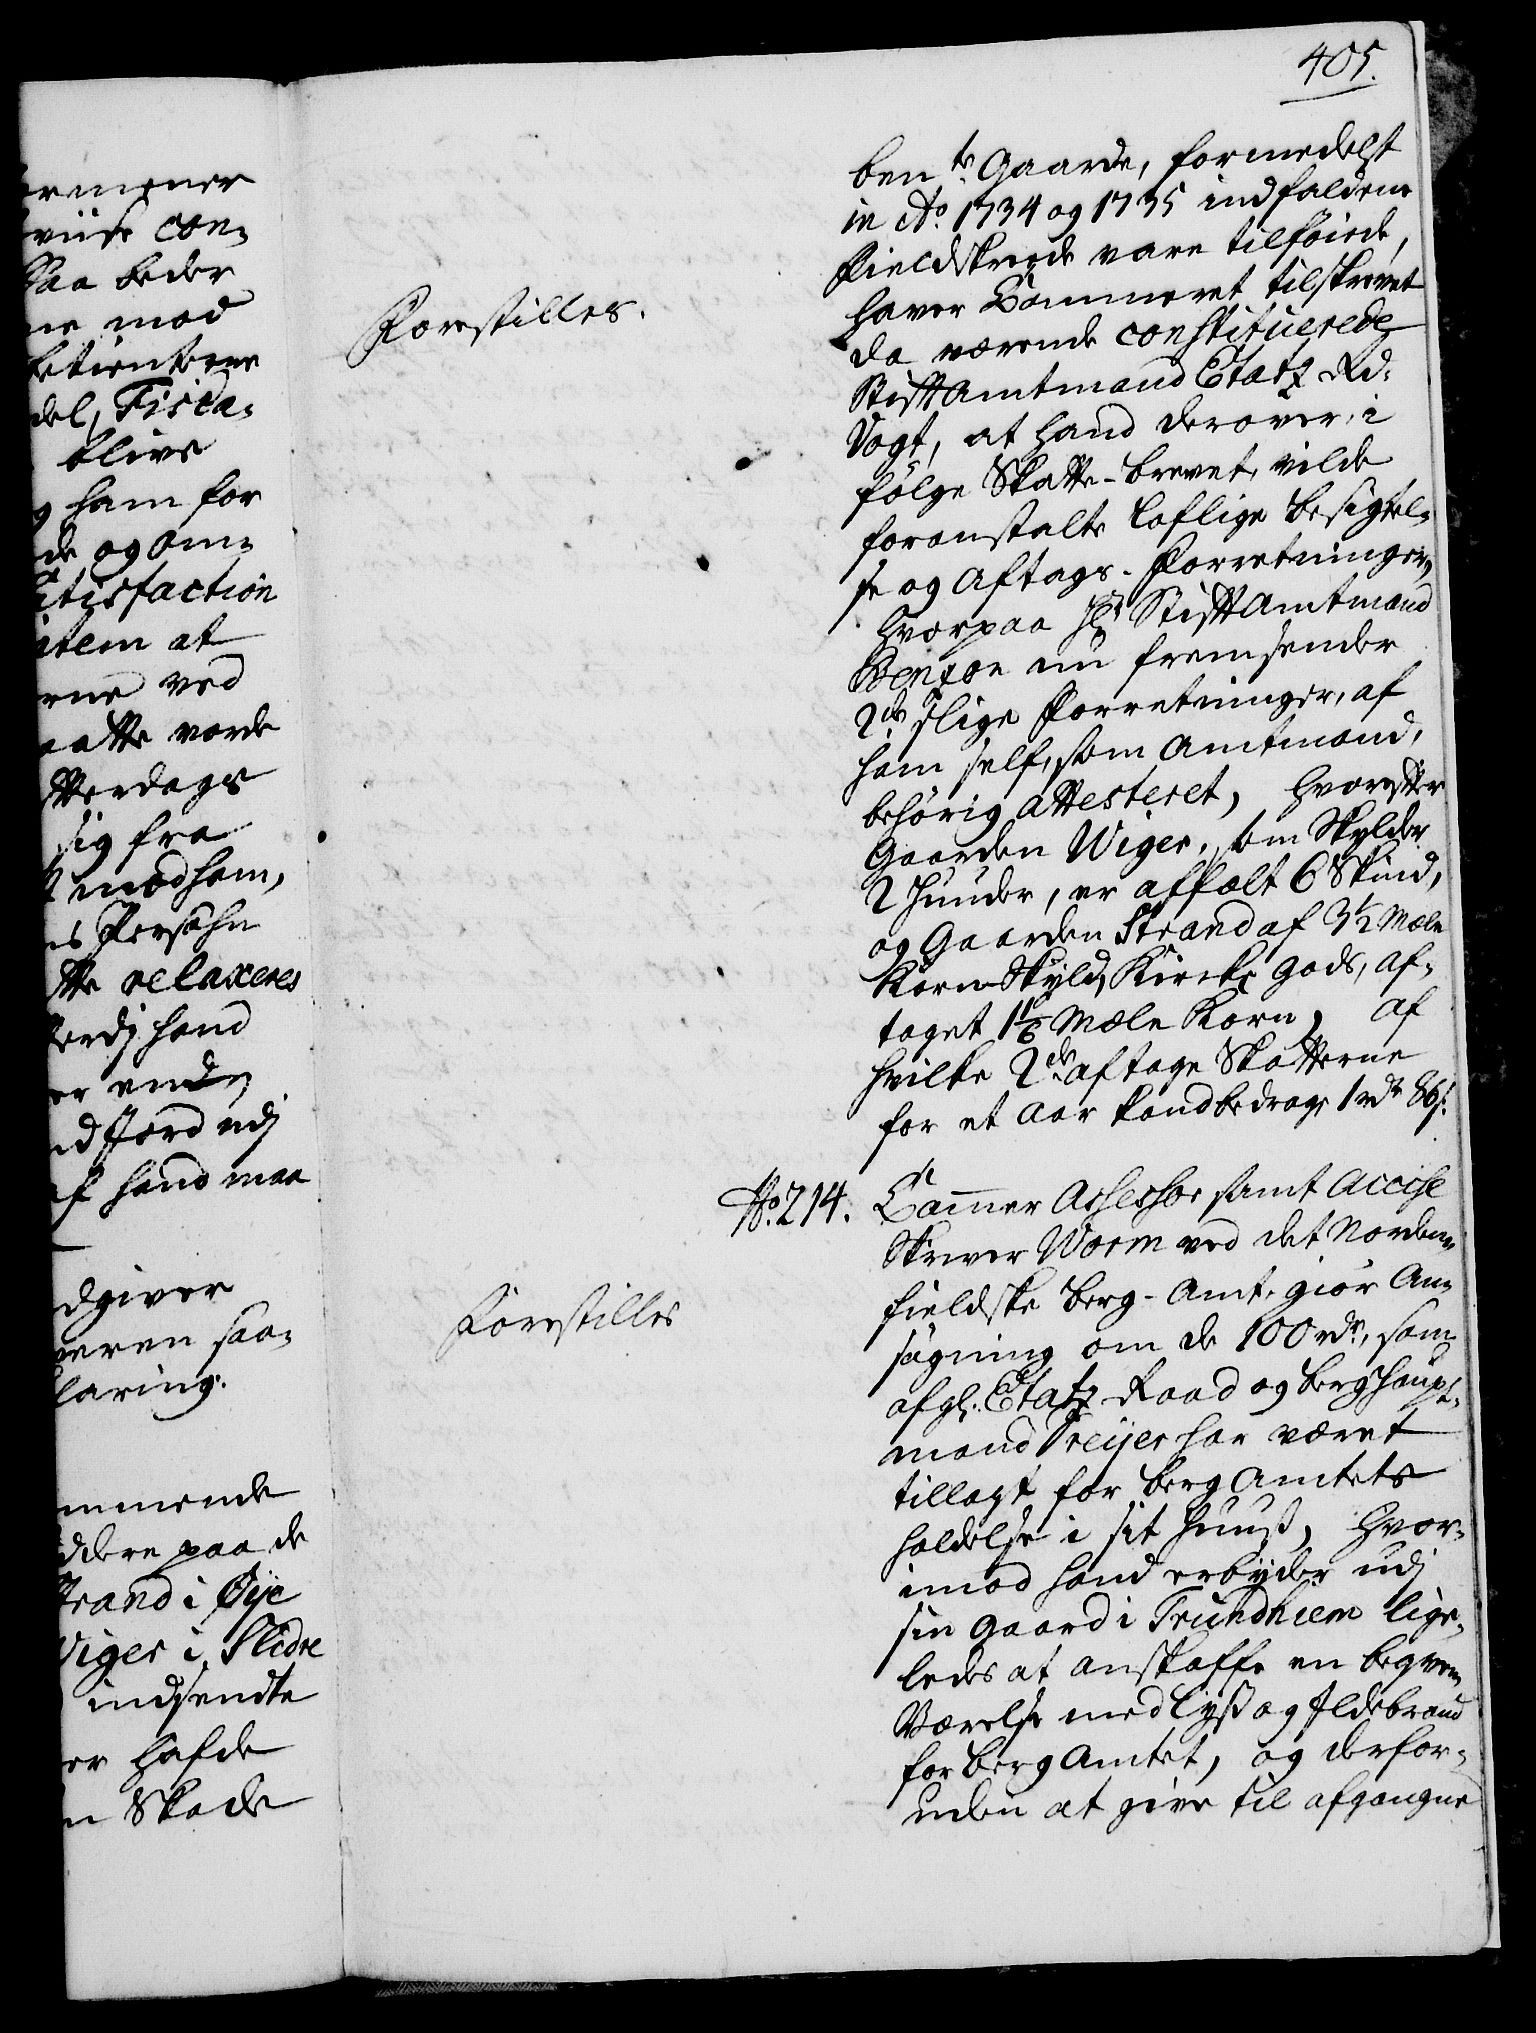 405.
ermener
viise con-
Saa beder
ne mod
betienterne
del, Fisca-
blive
g ham for
de og om-
atisfaction
item at
rne ved
aatte vorde
tterdags
sig fra
t mod ham,
es Persohn
tte relaxeres
ferdj hand
er vende
nd Jord udj
af hand maa
dgiver
veren saa-
laring.
mmende
ddere paa de
trand i Øÿe
Viger i Slidre
indsendte
er hafde
n Skade
bente. Gaarde, formedelst
in Ao. 1734 og 1735 indfaldene
Fieldskreede vare tilføiede,
Forestilles.
haver Cammeret tilskrevet
da værende constituerede
Stiftamtmand Etatz Rd.
Vogt, at hand derover, i
følge Skatte-brevet, vilde
foranstalte lovlige besigtel-
se og aftags-Forretninger,
hvorpaa Hr. Stiftamtmand
Benzon nu fremsender
2de slige Forretninger, af
ham self, som Amtmand,
behørig attesteret, hvorefter
Gaarden Wiger, som Skylder
2 Huuder, er affælt 6 Skind,
og Gaarden Strand af 3½ Mæle
Korn-Skyld, Kircke gods, af-
taget 1 1/6 Mæle Korn, af
hvilke 2de aftage Skatterne
for et Aar kand bedrage 1 rdr 86 s.
No. 214.
Cammer Assessor samt Accise
Skriver Worm ved det Norden-
fieldske Berg-Amt, giør An-
Forestilles
søgning om de 100 rdr., som
afgl. Etatz Raad og Berghaupt-
mand Treÿer har været
tillagt for Berg Amtets
holdelse i sit Huuß, hvor-
imod hand erbÿder udj
sin Gaard i Trundhiem lige-
ledes at anskaffe en beqvem
Værelse med Lyß og Ildebrand
for Berg Amtet, og derfor-
uden at give til afgangne